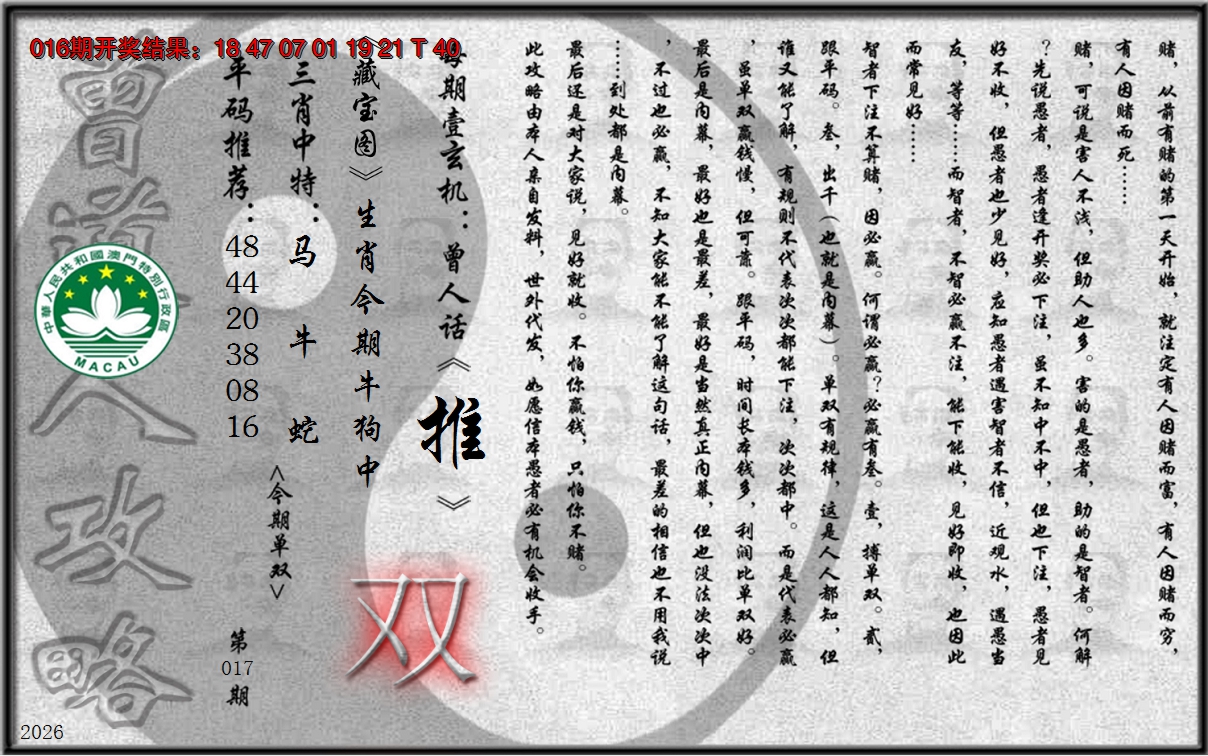 016期开奖结果：18 47 07 01 19 21 T 40
赌，从前有赌的第一天开始，就注定有人因赌而富，有人因赌而穷，
有人因赌而死……
赌，可说是害人不浅，但助人也多。害的是愚者，助的是智者。何解
？先说愚者，愚者逢开奖必下注，虽不知中不中，但也下注，愚者见
好不收，但愚者也少见好，应知愚者遇害智者不信，近观水，遇愚当
友，等等……而智者，不智必赢不注，能下能收，见好即收，也因此
而常见好……
智者下注不算赌，因必赢。何谓必赢？必赢有叁。壹，搏单双。贰，
跟平码。叁，出千（也就是内幕）。单双有规律，这是人人都知，但
谁又能了解，有规则不代表次次都能下注，次次都中。而是代表必赢
，虽单双赢钱慢，但可靠。跟平码，时间长本钱多，利润比单双好。
最后是内幕，最好也是最差，最好是当然真正内幕，但也没法次次中
，不过也必赢，不知大家能不能了解这句话，最差的相信也不用我说
……到处都是内幕。
最后还是对大家说，见好就收。不怕你赢钱，只怕你不赌。
此攻略由本人亲自发料，世外代发，如愿信本愚者必有机会收手。
每期壹玄机：曾人话《推》
《藏宝图》生肖今期牛狗中
双
三肖中特：马 牛 蛇
<今期单双>
平码推荐：48 44 20 38 08 16
第017期
曾道人攻略
中華人民共和國澳門特別行政區
MACAU
2026